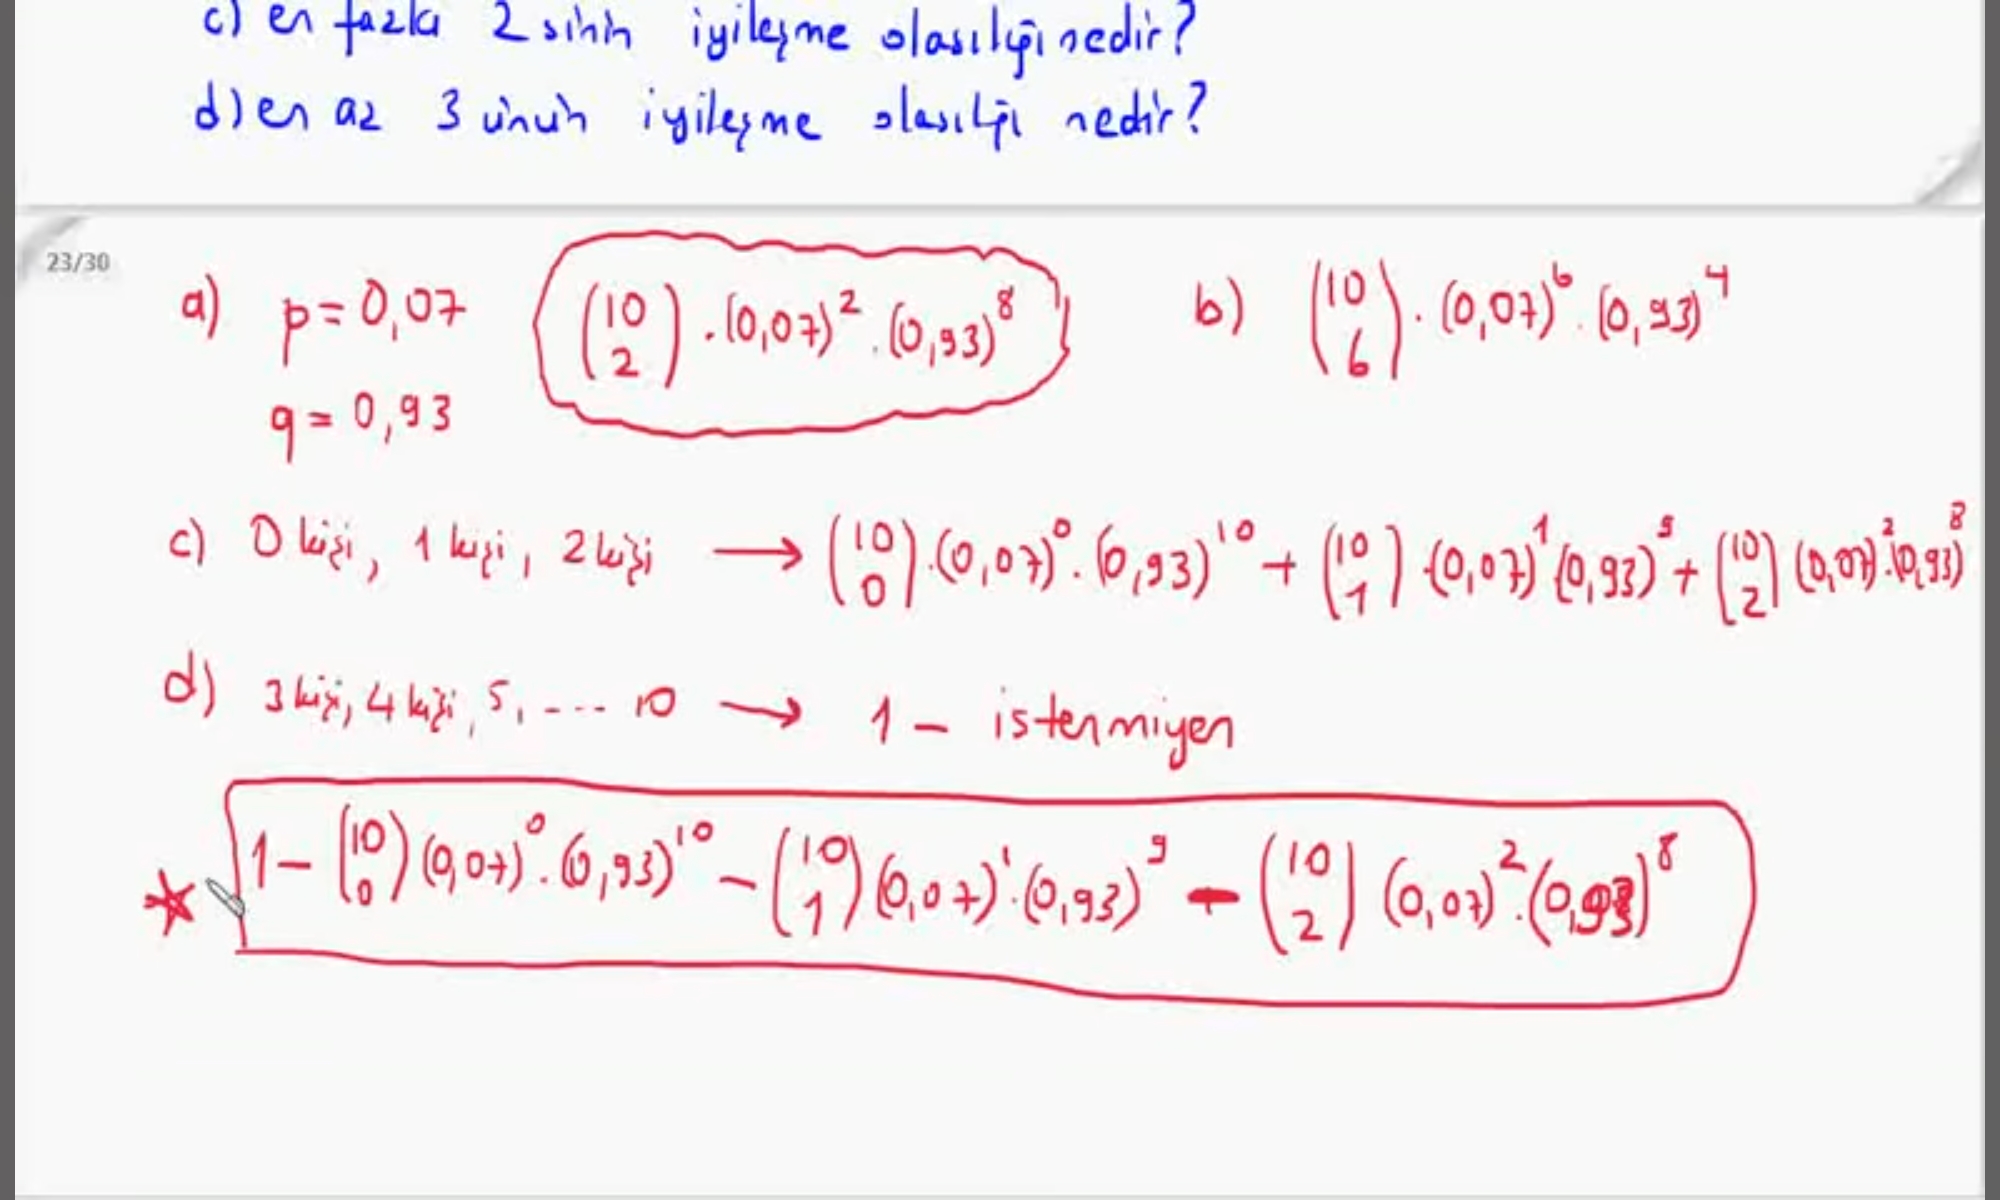 c) en fazla 2 sinin iyileşme olasılığı nedir?
d) en az 3 ünün iyileşme olasılığı nedir?
23/30
a) p = 0,07 (10 2) . (0,07)² . (0,93)⁸ b) (10 6) . (0,07)⁶ . (0,93)⁴
q = 0,93
c) 0 kişi, 1 kişi, 2 kişi → (10 0) . (0,07)⁰ . (0,93)¹⁰ + (10 1) . (0,07)¹ (0,93)⁹ + (10 2) (0,07)² . (0,93)⁸
d) 3 kişi, 4 kişi, 5, .... 10 → 1 - istenmiyen
1 - (10 0) (0,07)⁰ . (0,93)¹⁰ - (10 1) (0,07)¹ . (0,93)⁹ - (10 2) (0,07)² . (0,93)⁸